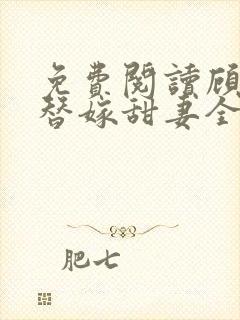 免費閱讀顧
替嫁甜妻全
肥七